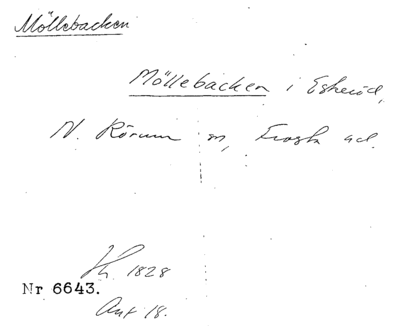 Möllebacken
Möllebacken i Eskeröd,
N. Rörum sn, Frosta hd.
1828
Nr 6643.
Ant 18.